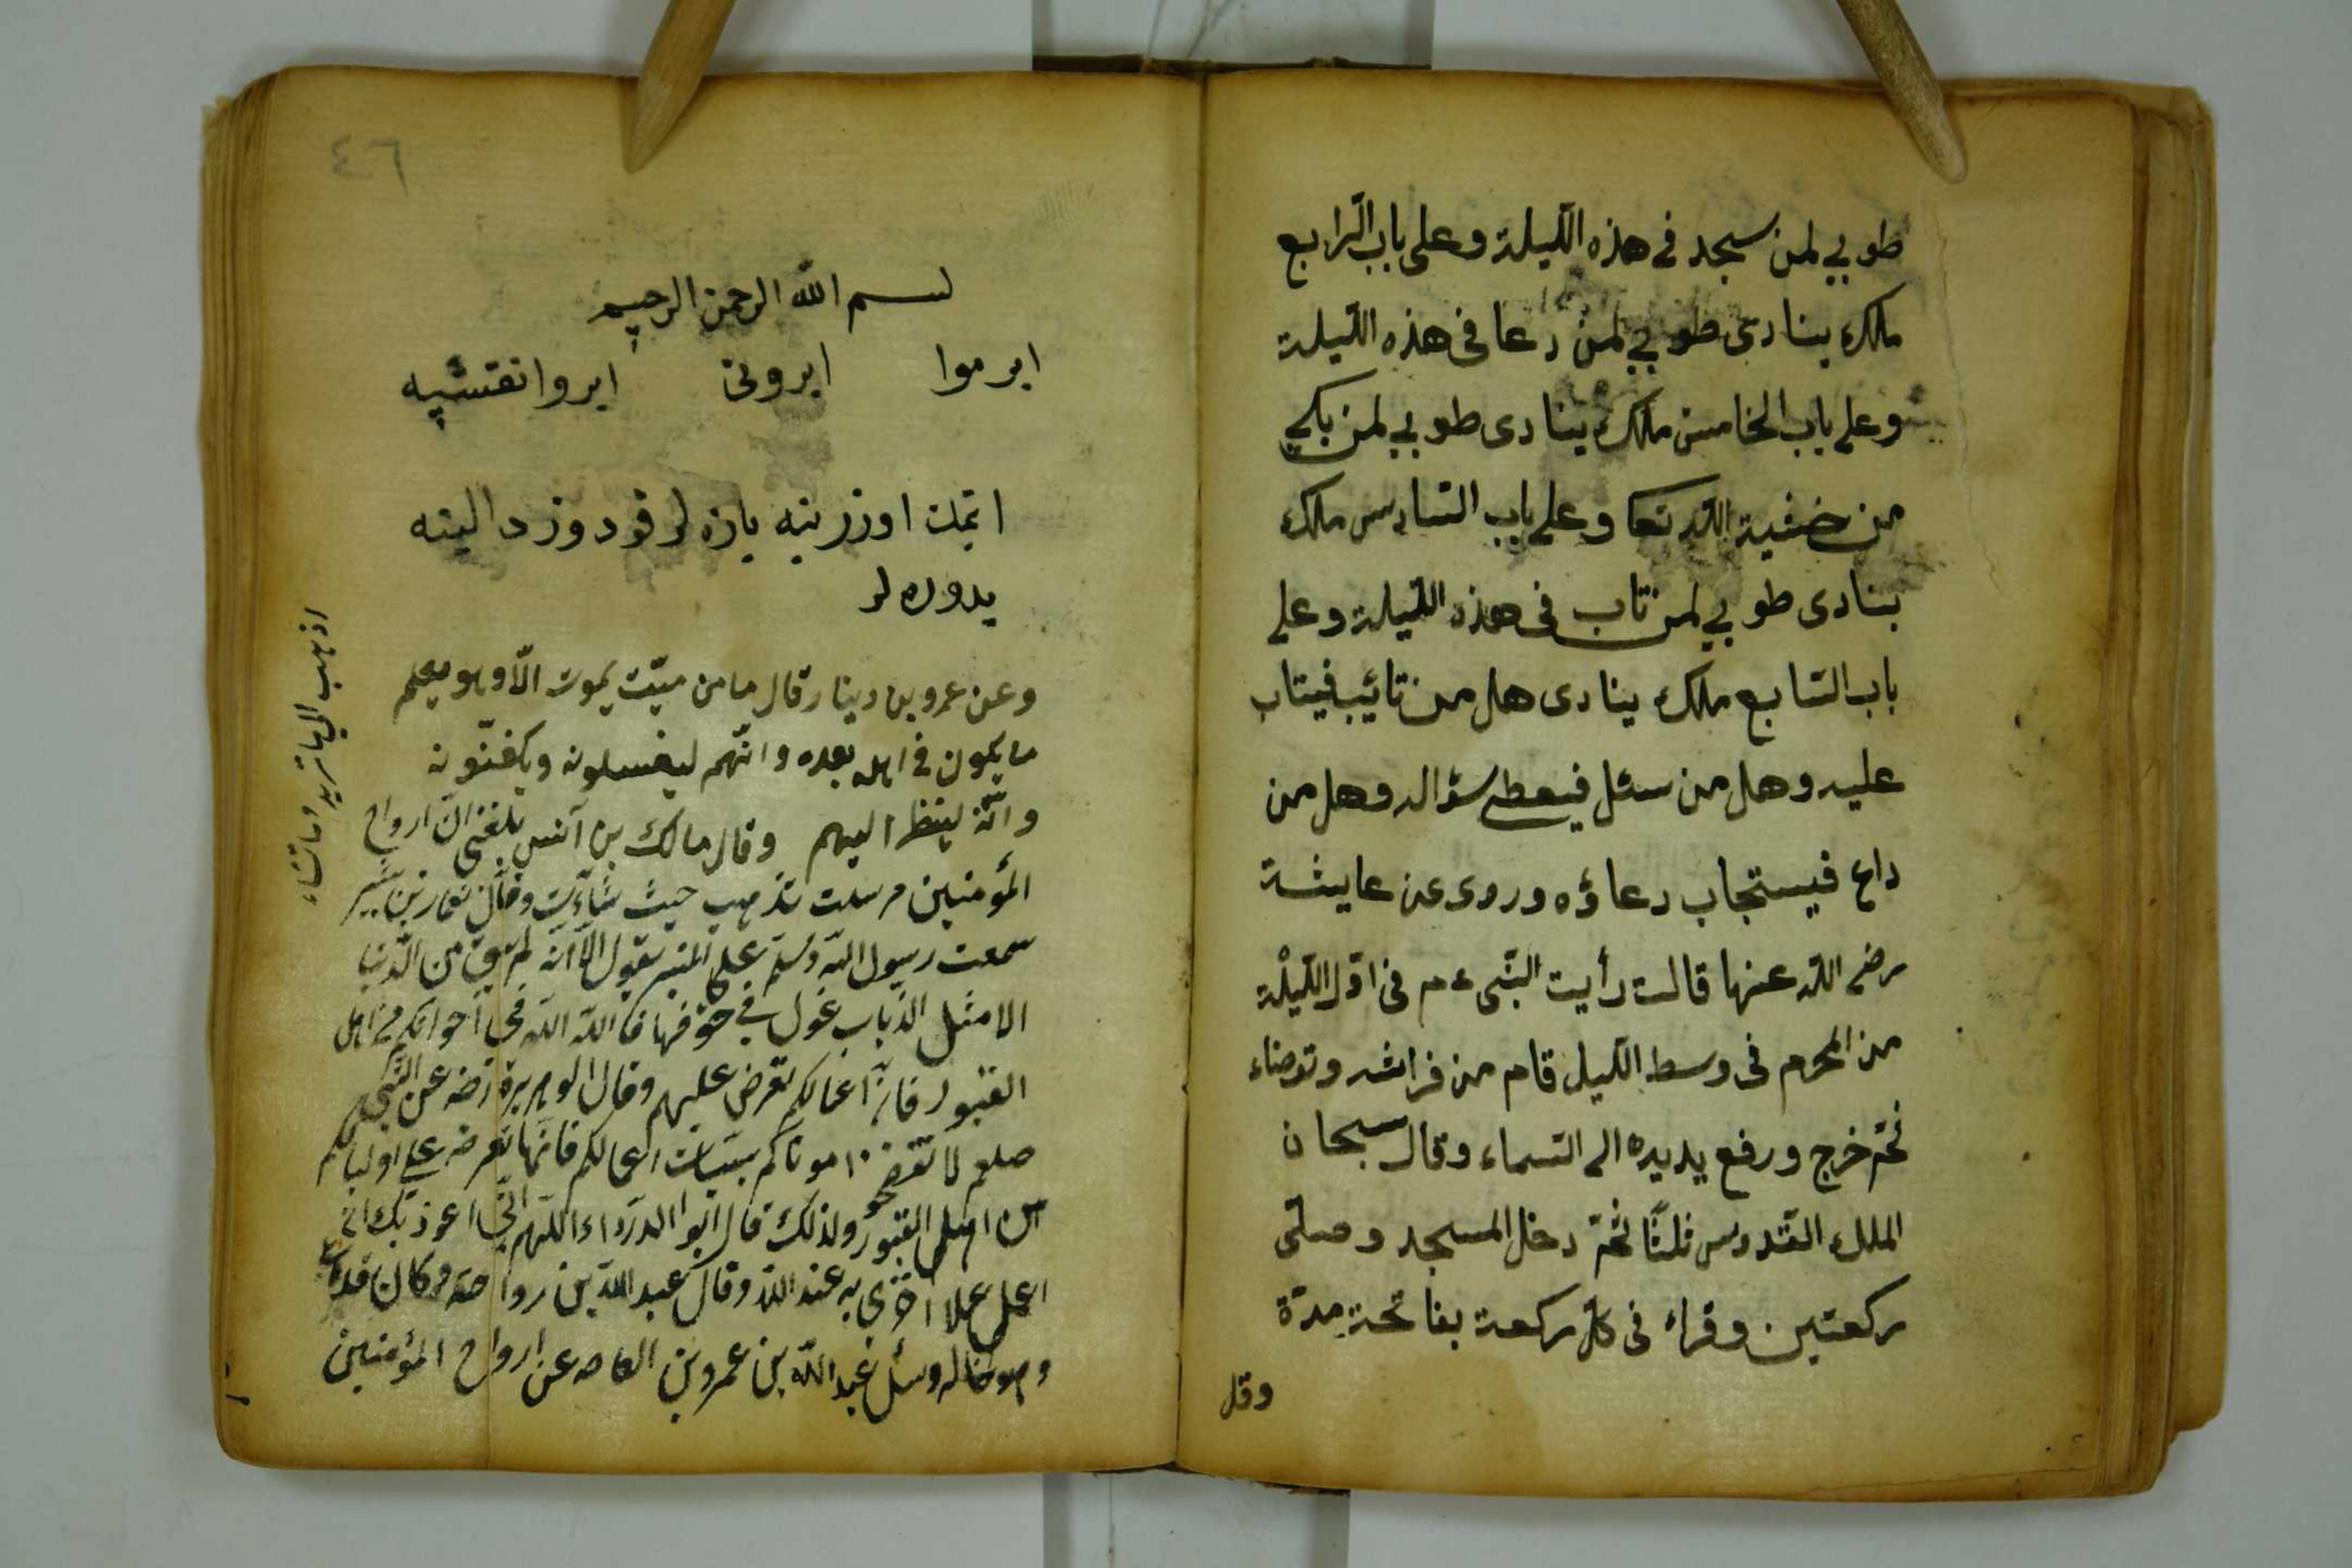 طوبي لمن سجد في هذه الليلة وعلى باب الرابع
ملك ينادى طوبي لمن دعا فى هذه الليلة
وعلى باب الخامس ملك ينادى طوبي لمن بكى
من خشية الله تعا وعلى باب السادس ملك
ينادى طوبي لمن تاب فى هذه الليلة وعلى
باب السابع ملك ينادى هل من تائب فيتاب
عليه وهل من سئل فيعطى سؤاله وهل من
داع فيستجاب دعاؤه وروى عن عايشة
رضى الله عنها قالت رأيت النبى عم فى اول الليلة
من المحرم فى وسط الليل قام من فراشه وتوضاء
ثم خرج ورفع يديه الى السماء وقال سبحان
الملك القدوس ثلثا ثم دخل المسجد وصلى
ركعتين وقراء فى كل ركعة بفاتحة مرة
وقل
٤٦
بسم الله الرحمن الرحيم
ابرموا ابرونى ابروانقشيه
اتمك اوزرينه يازه لر قودوز دالينه
يدوره لر
وعن عمرو بن دينار قال ما من ميت يموت الا وهو يعلم
ما يكون في اهله بعده وانهم ليغسلونه ويكفنونه
وانه لينظر اليهم وقال مالك بن آنس بلغنى ان ارواح
المؤمنين مرسلت تذهب حيث شاءت وقال نعمان بن بشير
سمعت رسول الله وسلم على المنبر يقول الا انه لم يبق من الدنيا
الا مثل الذباب في جوفها فا الله الله فى اخوانكم من اهل
القبور فان اعمالكم تعرض عليهم وقال ابو هريرة رضه عن النبي
صلعم لا تفضحوا موتاكم بسيئات اعمالكم فانها تعرض على اوليائكم
من اهل القبور ولذلك قال ابوا الدرداء اللهم انى اعوذ بك ان
اعمل عملا اخزى به عند الله وقال عبد الله بن رواحة وكان قد مات
وهو خاله وسئل عبد الله بن عمرو بن العاص عن ارواح المؤمنين
اذهب الى ما تريد وما تشاء